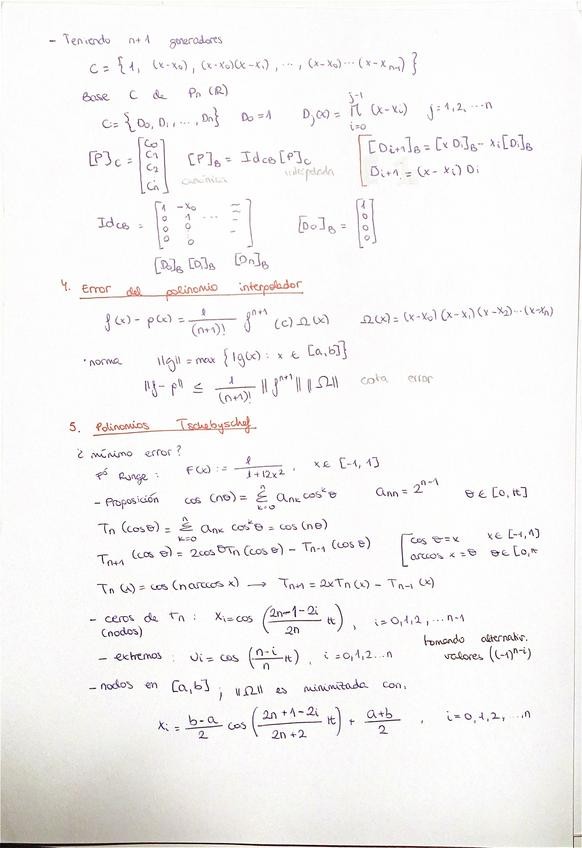 - Teniendo n+1 generadores
C = {1, (x-x₀), (x-x₀)(x-x₁), ..., (x-x₀)...(x-xₙ₋₁)}
Base C de Pₙ(ℝ)
C = {D₀, D₁, ..., Dₙ} D₀ = 1 Dⱼ(x) = ∏_{i=0}^{j-1} (x-xᵢ) j = 1,2,...n
[P]_C = [C₀ C₁ C₂ ⋮ Cₙ] [P]_B = Id_CB [P]_C [Dᵢ₊₁]_B = [x Dᵢ]_B - xᵢ[Dᵢ]_B
canónica interpolada Dᵢ₊₁ = (x-xᵢ) Dᵢ
Id_CB = [1 -x₀ 0 1 ... 0 0 0 0] [D₀]_B = [1 0 0 0]
[D₀]_B [D₁]_B [Dₙ]_B
4. Error del polinomio interpolador
f(x) - p(x) = 1/(n+1)! fⁿ⁺¹ (c) Ω(x) Ω(x) = (x-x₀)(x-x₁)(x-x₂)...(x-xₙ)
· norma ||g|| = max {|g(x) : x ∈ [a,b]}
||f - p|| ≤ 1/(n+1)! ||fⁿ⁺¹|| ||Ω|| cota error
5. Polinomios Tschebyschef
¿ mínimo error ?
Runge : F(x) := 1/(1+12x²) , x ∈ [-1, 1]
- Proposición cos (nθ) = Σ_{k=0}^{n} aₙₖ cosᵏ θ aₙₙ = 2ⁿ⁻¹ θ ∈ [0, π]
Tₙ (cos θ) = Σ_{k=0}^{n} aₙₖ cosᵏ θ = cos (nθ)
Tₙ₊₁ (cos θ) = 2cosθTₙ (cos θ) - Tₙ₋₁ (cos θ) [cos θ = x x ∈ [-1,1]
arccos x = θ θ ∈ [0,π
Tₙ (x) = cos (n arccos x) → Tₙ₊₁ = 2x Tₙ (x) - Tₙ₋₁ (x)
- ceros de Tₙ : xᵢ = cos ((2n-1-2i)/2n π) , i = 0,1,2, ...n-1
(nodos)
- extremos : uᵢ = cos ((n-i)/n π) , i = 0,1,2...n tomando alternativ. valores ((-1)ⁿ⁻ⁱ)
- nodos en [a,b] ; ||Ω|| es minimizada con,
xᵢ = (b-a)/2 cos ((2n+1-2i)/(2n+2) π) + (a+b)/2 , i = 0,1,2, ..., n